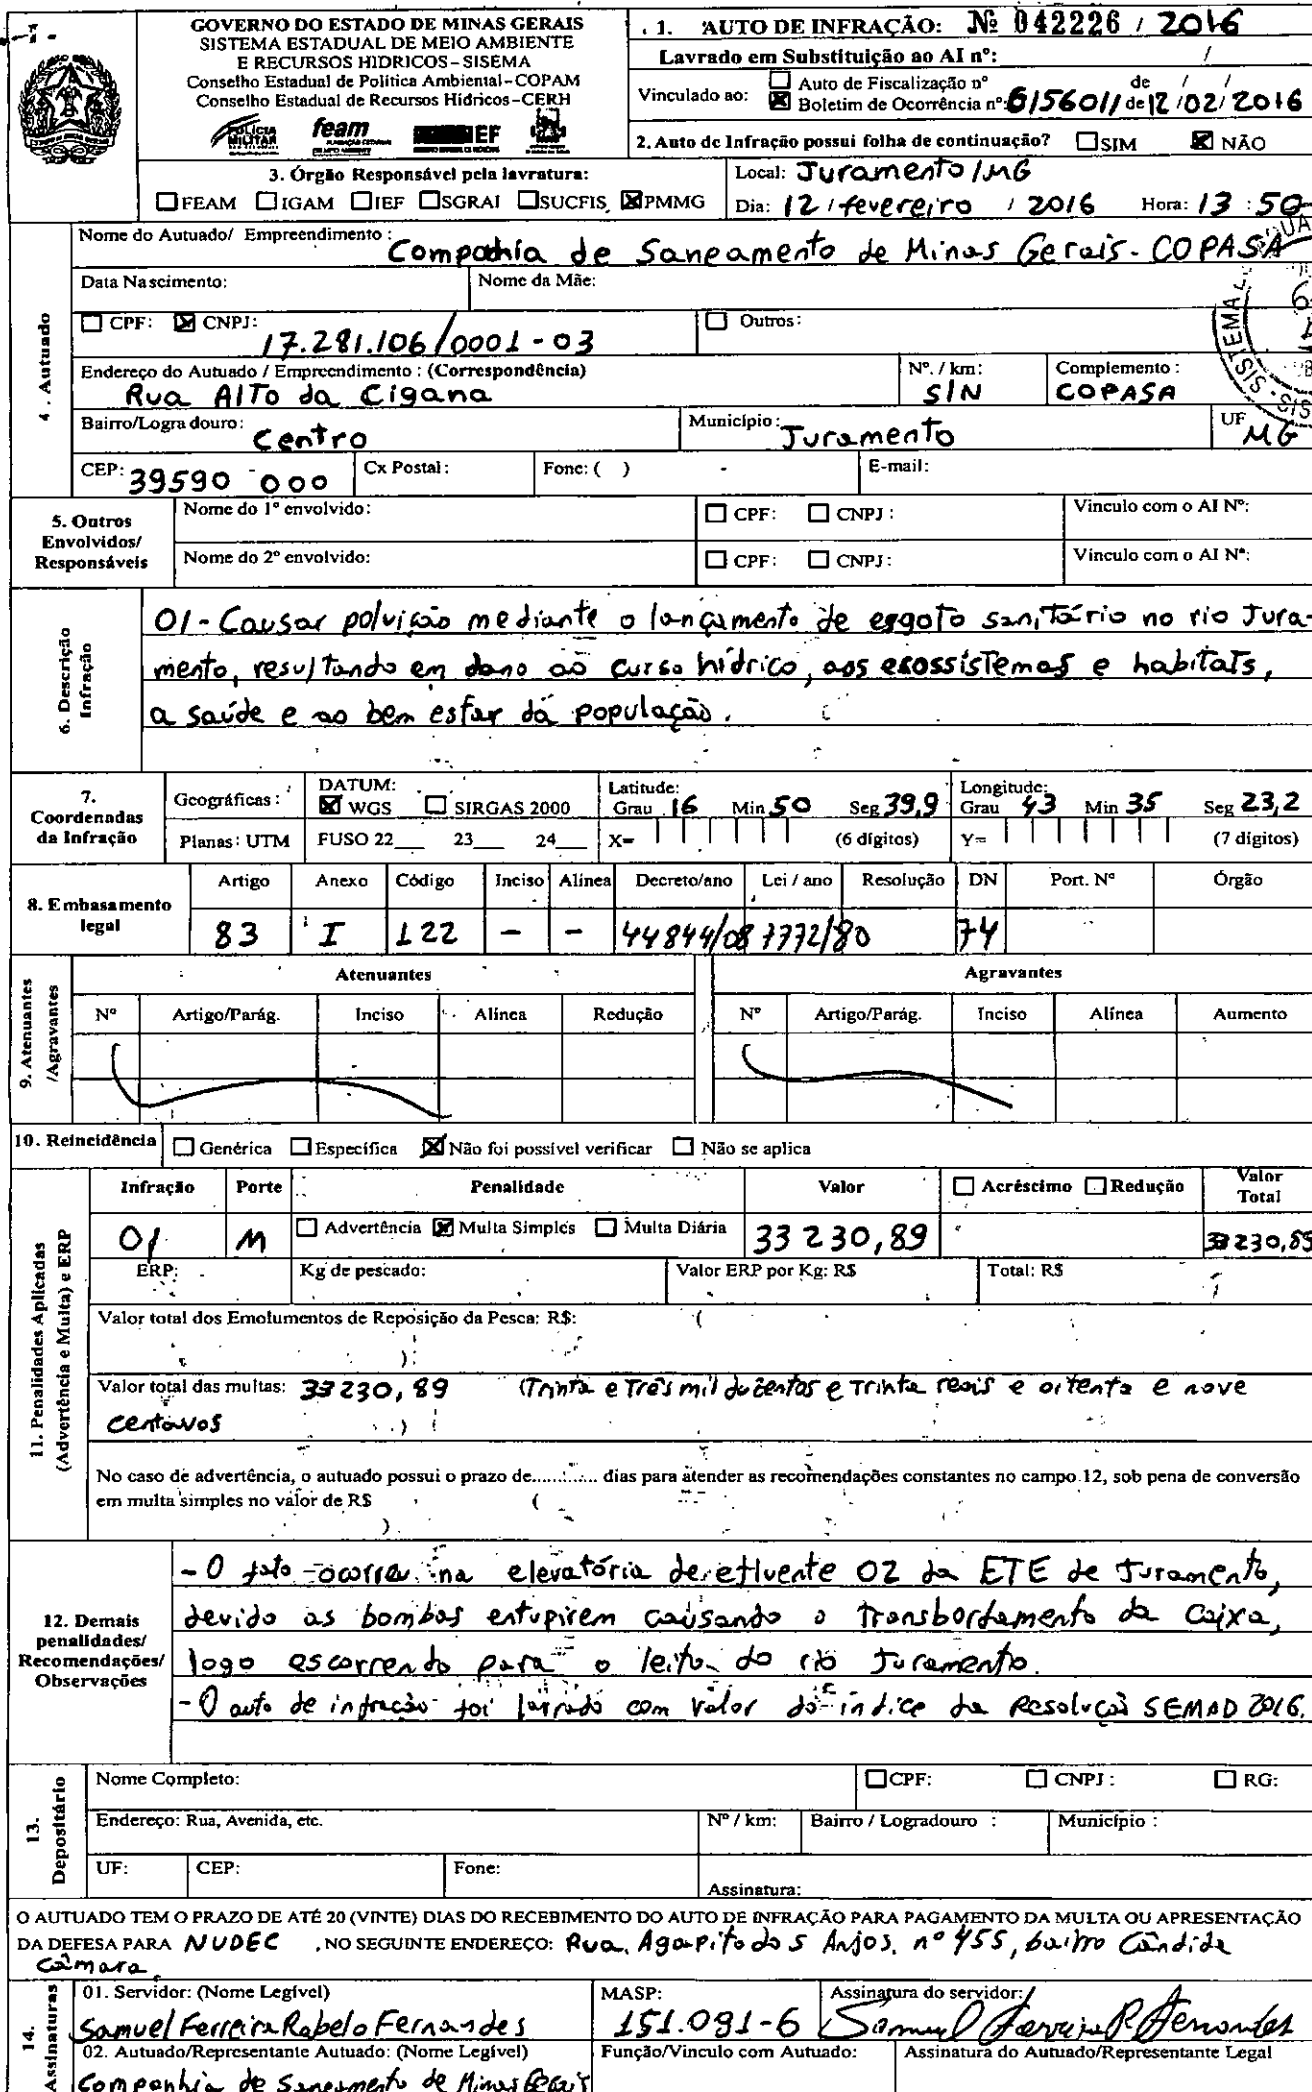 GOVERNO DO ESTADO DE MINAS GERAIS
SISTEMA ESTADUAL DE MEIO AMBIENTE
E RECURSOS HIDRICOS - SISEMA
Conselho Estadual de Política Ambiental - COPAM
Conselho Estadual de Recursos Hídricos - CERH
POLÍCIA MILITAR feam IEF
1. AUTO DE INFRAÇÃO: Nº 042226 / 2016
Lavrado em Substituição ao AI nº: /
Vinculado ao: ☐ Auto de Fiscalização nº de / /
☒ Boletim de Ocorrência nº: 615601/ de 12/02/2016
2. Auto de Infração possui folha de continuação? ☐ SIM ☒ NÃO
3. Órgão Responsável pela lavratura:
☐ FEAM ☐ IGAM ☐ IEF ☐ SGRAI ☐ SUCFIS ☒ PMMG
Local: Juramento/MG
Dia: 12 / fevereiro / 2016 Hora: 13 : 50
4. Autuado
Nome do Autuado/ Empreendimento: Compahia de Saneamento de Minas Gerais - COPASA
Data Nascimento: Nome da Mãe:
☐ CPF: ☒ CNPJ: 17.281.106/0001-03 ☐ Outros:
Endereço do Autuado / Empreendimento: (Correspondência) Nº. / km: Complemento:
Rua Alto da Cigana S/N COPASA
Bairro/Logradouro: Centro Município: Juramento UF MG
CEP: 39590 000 Cx Postal: Fone: ( ) - E-mail:
5. Outros Envolvidos/ Responsáveis
Nome do 1º envolvido: ☐ CPF: ☐ CNPJ: Vinculo com o AI Nº:
Nome do 2º envolvido: ☐ CPF: ☐ CNPJ: Vinculo com o AI Nº:
6. Descrição Infração
01 - Causar poluição mediante o lançamento de esgoto sanitário no rio Jura-
mento, resultando em dano ao curso hídrico, aos ecossistemas e habitats,
a saúde e ao bem estar da população.
7. Coordenadas da Infração
Geográficas: DATUM: ☒ WGS ☐ SIRGAS 2000 Latitude: Grau 16 Min 50 Seg 39,9 Longitude: Grau 43 Min 35 Seg 23,2
Planas: UTM FUSO 22 23 24 X= (6 dígitos) Y= (7 dígitos)
8. Embasamento legal
Artigo Anexo Código Inciso Alínea Decreto/ano Lei / ano Resolução DN Port. Nº Órgão
83 I 122 - - 44844/08 7772/80 74
9. Atenuantes /Agravantes
Atenuantes Agravantes
Nº Artigo/Parág. Inciso Alínea Redução Nº Artigo/Parág. Inciso Alínea Aumento
10. Reincidência ☐ Genérica ☐ Específica ☒ Não foi possível verificar ☐ Não se aplica
11. Penalidades Aplicadas (Advertência e Multa) e ERP
Infração Porte Penalidade Valor ☐ Acréscimo ☐ Redução Valor Total
01 M ☐ Advertência ☒ Multa Simples ☐ Multa Diária 33 230,89 33 230,89
ERP: Kg de pescado: Valor ERP por Kg: R$ Total: R$
Valor total dos Emolumentos de Reposição da Pesca: R$: (
)
Valor total das multas: 33 230,89 (Trinta e Três mil duzentos e Trinta reais e oitenta e nove
centavos )
No caso de advertência, o autuado possui o prazo de............ dias para atender as recomendações constantes no campo 12, sob pena de conversão
em multa simples no valor de R$ (
)
12. Demais penalidades/ Recomendações/ Observações
- O fato ocorreu na elevatória de efluente 02 da ETE de Juramento,
devido as bombas entupirem causando o transbordamento da caixa,
logo escorrendo para o leito do rio Juramento.
- O auto de infração foi lavrado com valor do índice da Resolução SEMAD 2016.
13. Depositário
Nome Completo: ☐ CPF: ☐ CNPJ: ☐ RG:
Endereço: Rua, Avenida, etc. Nº / km: Bairro / Logradouro: Município:
UF: CEP: Fone: Assinatura:
O AUTUADO TEM O PRAZO DE ATÉ 20 (VINTE) DIAS DO RECEBIMENTO DO AUTO DE INFRAÇÃO PARA PAGAMENTO DA MULTA OU APRESENTAÇÃO
DA DEFESA PARA NUDEC , NO SEGUINTE ENDEREÇO: Rua, Agapito dos Anjos, nº 455, bairro Cândida
Câmara
14. Assinaturas
01. Servidor: (Nome Legível) MASP: Assinatura do servidor:
Samuel Ferreira Rabelo Fernandes 151.091-6 Samuel Ferreira R Fernandes
02. Autuado/Representante Autuado: (Nome Legível) Função/Vinculo com Autuado: Assinatura do Autuado/Representante Legal
Companhia de Saneamento de Minas Gerais